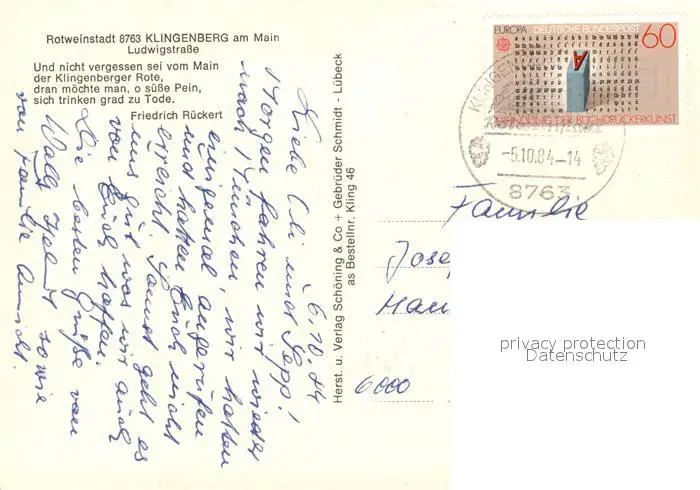 Rotweinstadt 8763 KLINGENBERG am Main
Ludwigstraße
Und nicht vergessen sei vom Main
der Klingenberger Rote,
dran möchte man, o süße Pein,
sich trinken grad zu Tode.
Friedrich Rückert
6.10.84
Liebe Cli und Sepp!
Morgen fahren wir wieder
nach München, wir hatten
einigemal angerufen
und hatten Euch nicht
erreicht. Sonst geht es
uns gut was wir auch
von Euch hoffen.
Die besten Grüße von
Wally sowie
von Familie
Herst. u. Verlag Schöning & Co + Gebrüder Schmidt - Lübeck
as Bestellnr. Kling 46
EUROPA DEUTSCHE BUNDESPOST 60
A
ERFINDUNG DER BUCHDRUCKERKUNST
KLINGEN
-5.10.84-14
8763
Familie
Jose
Han
6000
privacy protection
Datenschutz